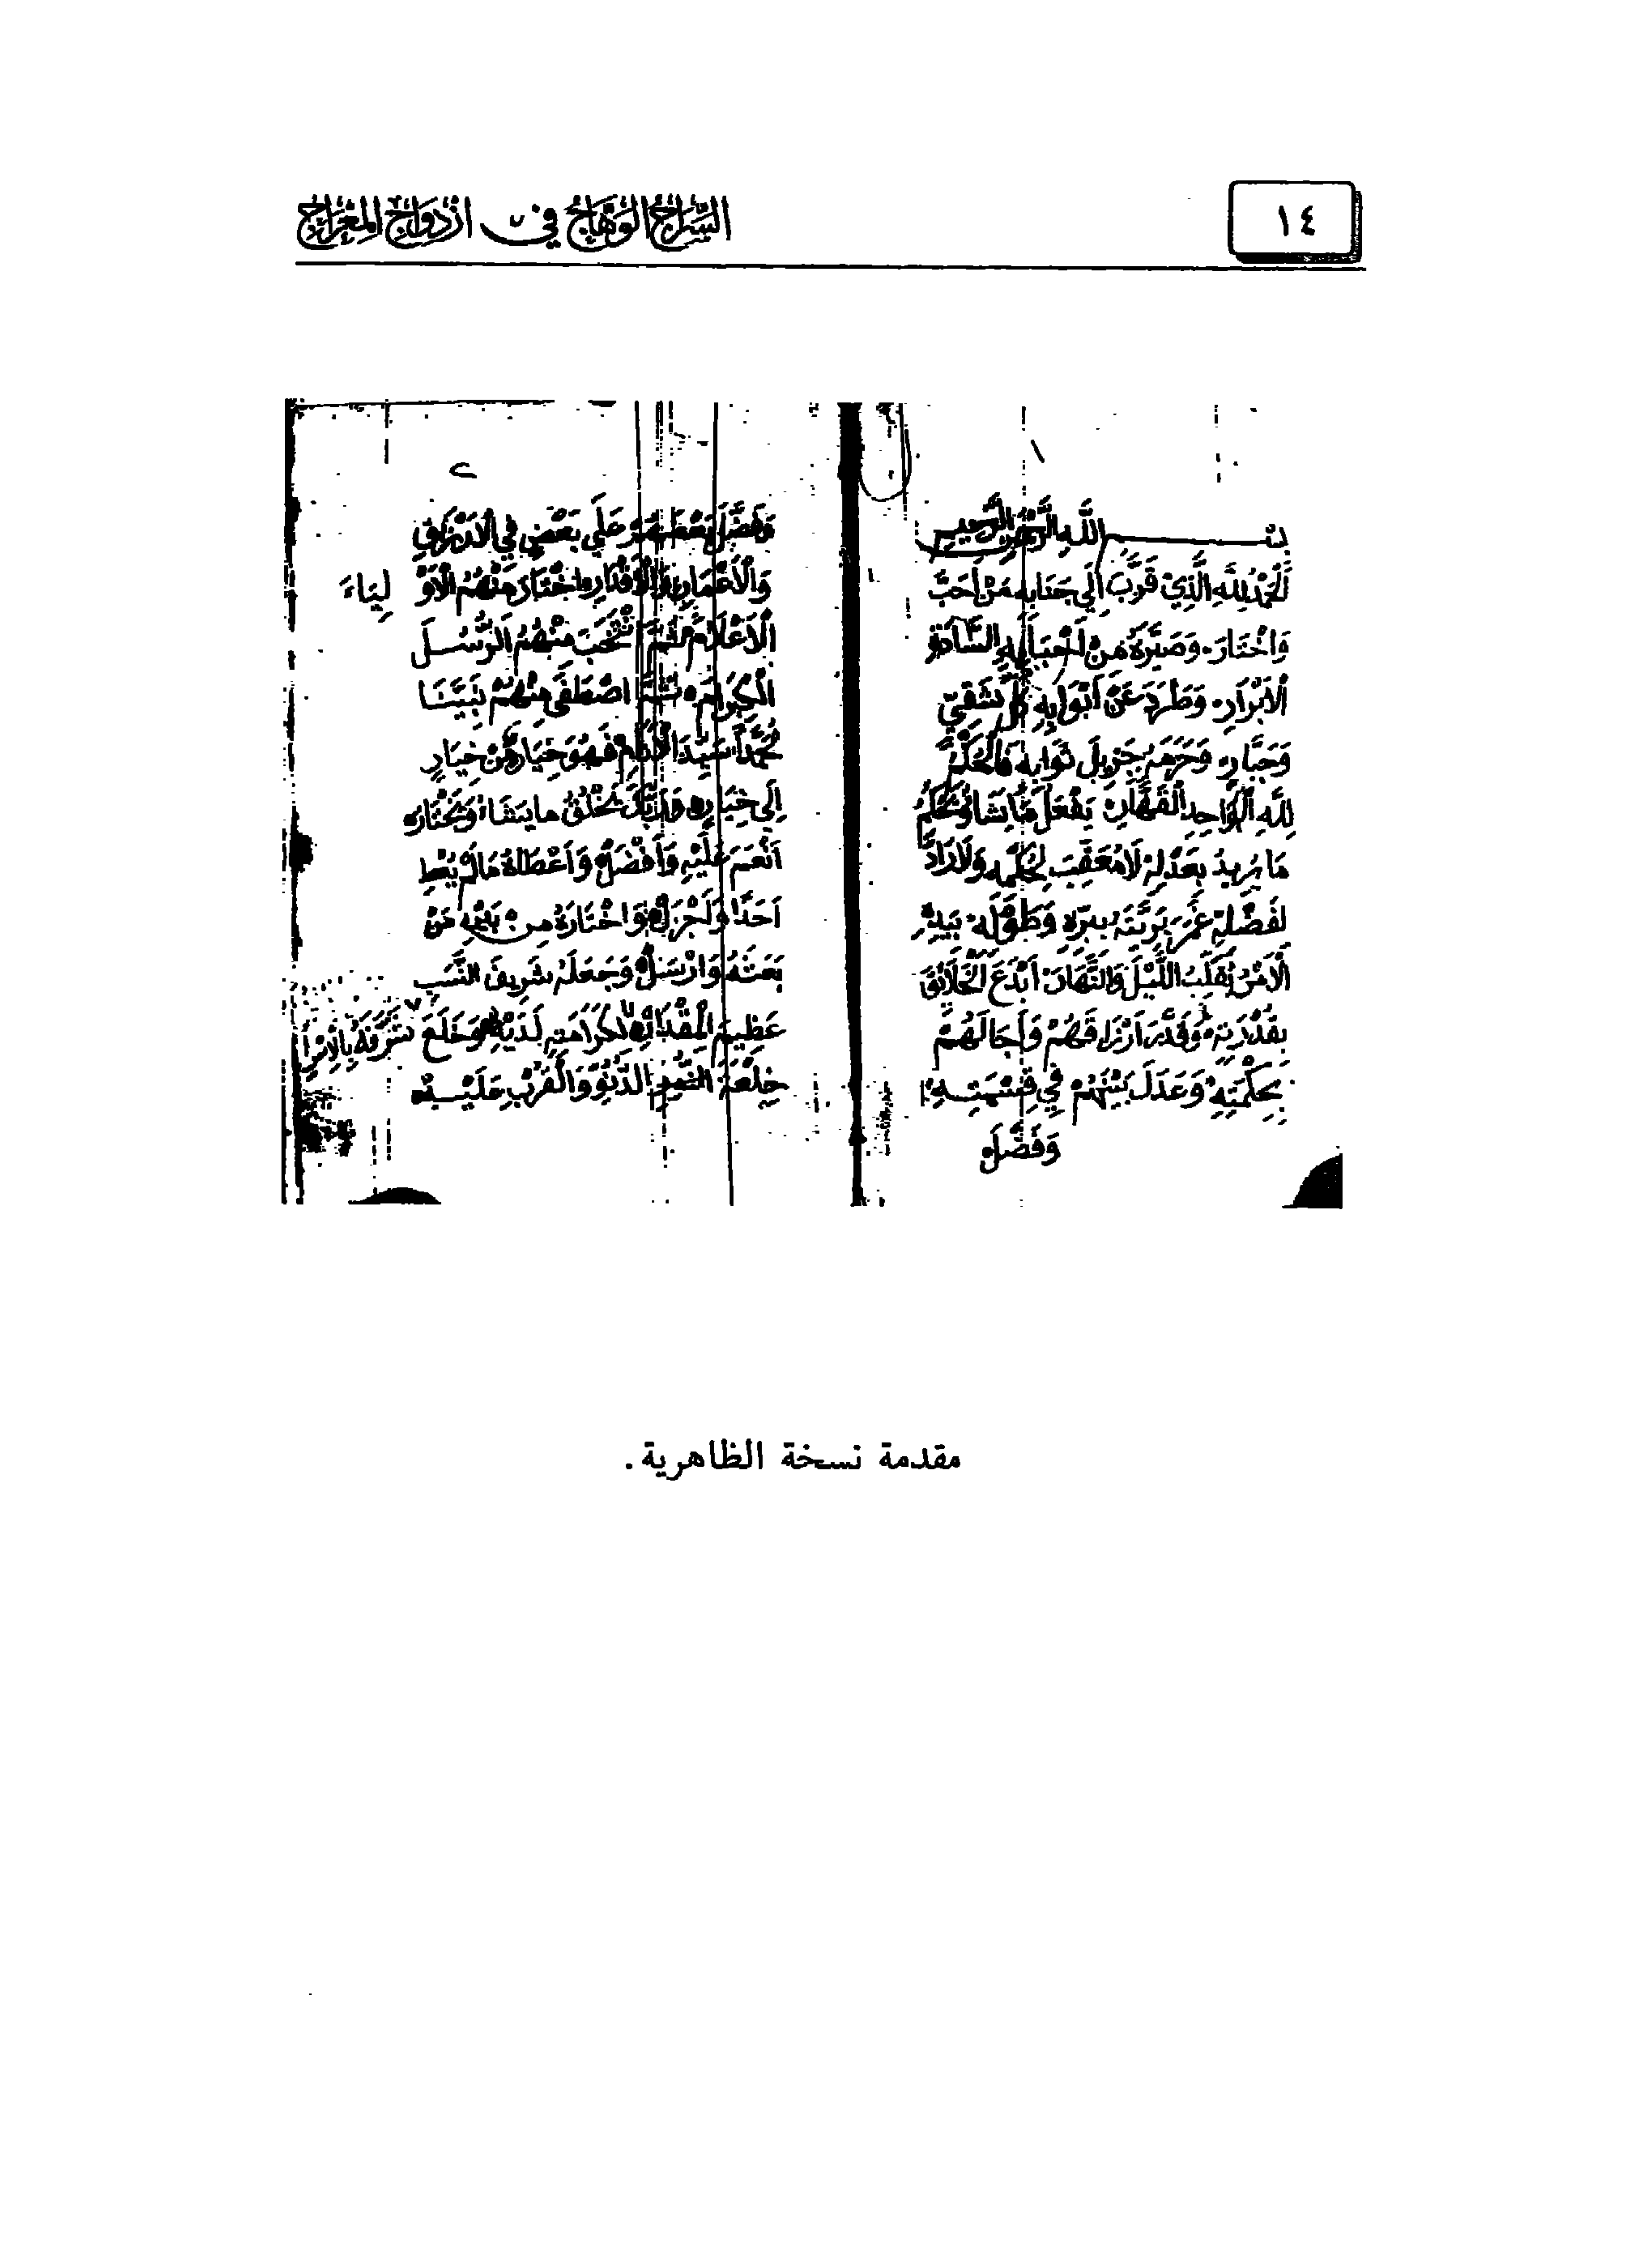 ١٤
السراج الوهاج في ازدواج المعراج
١
بسم الله الرحمن الرحيم
اَلْحَمْدُ لِلَّهِ الَّذِيْ قَرَّبَ إِلَى جَنَابِهِ مَنْ أَحَبَّ
وَاخْتَارَ، وَصَيَّرَهُ مِنْ أَحْبَابِهِ السَّادَةِ
الْأَبْرَارِ، وَطَرَدَ عَنْ أَبْوَابِهِ كُلَّ شَقِيّ
وَجَبَّارٍ، وَحَرَمَهُ جَزِيلَ ثَوَابِهِ فَالْحُكْمُ
لِلَّهِ الْوَاحِدِ الْقَهَّارِ، يَفْعَلُ مَا يَشَاءُ وَيَحْكُمُ
مَا يُرِيدُ بِعَدْلِهِ لَا مُعَقِّبَ لِحُكْمِهِ وَلَا رَادَّ
لِفَضْلِهِ عَمَّرَ بَرِيَّتَهُ بِبِرِّهِ وَطَوْلِهِ، بِيَدِهِ
الْأَمْرُ يُقَلِّبُ اللَّيْلَ وَالنَّهَارَ، أَبْدَعَ الْخَلَائِقَ
بِقُدْرَتِهِ، وَقَدَّرَ أَرْزَاقَهُمْ وَآجَالَهُمْ
بِحِكْمَتِهِ، وَعَدَلَ بَيْنَهُمْ فِي قِسْمَتِهِ،
وَفَضَّلَ
٢
وَفَضَّلَ بَعْضَهُمْ عَلَى بَعْضٍ فِي الْأَرْزَاقِ
وَالْأَعْمَارِ وَالْأَقْدَارِ، اخْتَارَ مِنْهُمُ الْأَوْلِيَاءَ
الْأَعْلَامَ ثُمَّ انْتَخَبَ مِنْهُمُ الرُّسُلَ
الْكِرَامَ، ثُمَّ اصْطَفَى مِنْهُمْ نَبِيَّنَا
مُحَمَّداً سَيِّدَ الْأَنَامِ فَهُوَ خِيَارٌ مِنْ خِيَارٍ
إِلَى خِيَارٍ، وَرَبُّكَ يَخْلُقُ مَا يَشَاءُ وَيَخْتَارُ،
أَنْعَمَ عَلَيْهِ وَأَفْضَلَ، وَأَعْطَاهُ مَا لَمْ يُعْطِ
أَحَدًا وَأَجْزَلَ، وَاخْتَارَهُ مِنْ بَيْنِ مَنْ
بَعَثَهُ وَأَرْسَلَ، وَجَعَلَهُ شَرِيفَ النَّسَبِ
عَظِيمَ الْمِقْدَارِ، لِكَرَامَتِهِ لَدَيْهِ شَرَّفَهُ بِالْإِسْرَا وَخَلَعَ
خِلْعَةَ الدُّنُوِّ وَالْقُرْبِ عَلَيْهِ
مقدمة نسخة الظاهرية.